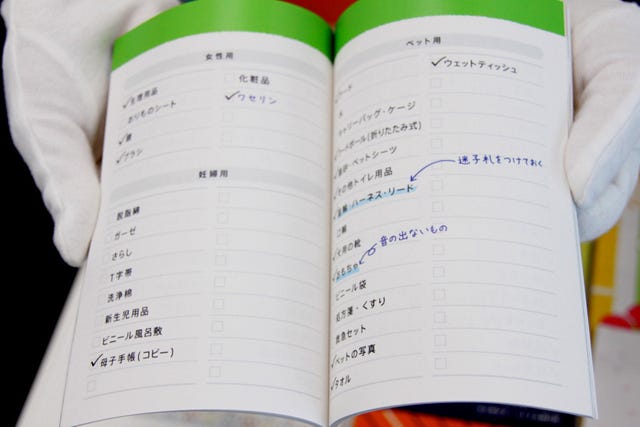 女性用
✓生理用品
おりものシート
✓鏡
✓ブラシ
化粧品
✓ワセリン
妊婦用
脱脂綿
ガーゼ
さらし
T字帯
洗浄綿
新生児用品
ビニール風呂敷
✓母子手帳(コピー)
ペット用
✓フード
水
キャリーバッグ・ケージ
✓フードボール(折りたたみ式)
ペットシーツ
✓その他トイレ用品
✓首輪・ハーネス・リード
迷子札をつけておく
口輪
✓犬用の靴
✓おもちゃ
音の出ないもの
ビニール袋
処方箋・くすり
救急セット
✓ペットの写真
✓タオル
✓ウェットティッシュ